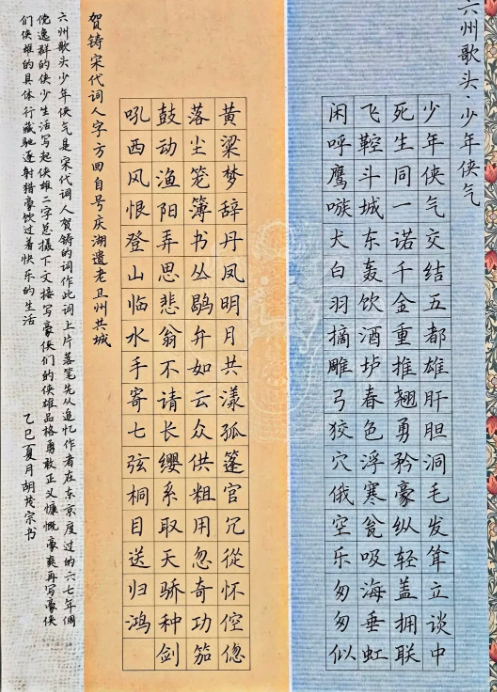 六州歌头·少年侠气
少年侠气交结五都雄肝胆洞毛发耸立谈中
死生同一诺千金重推翘勇矜豪纵轻盖拥联
飞鞚斗城东轰饮酒垆春色浮寒瓮吸海垂虹
闲呼鹰嗾犬白羽摘雕弓狡穴俄空乐匆匆似
黄粱梦辞丹凤明月共漾孤篷官冗從怀倥偬
落尘笼簿书丛鹖弁如云众供粗用忽奇功笳
鼓动渔阳弄思悲翁不请长缨系取天骄种剑
吼西风恨登山临水手寄七弦桐目送归鸿
贺铸宋代词人字方回自号庆湖遗老卫州共城
六州歌头少年侠气是宋代词人贺铸的词作此词上片落笔先从追忆作者在东京度过的六七年倜
傥逸群的侠少生活写起侠雄二字总摄下文接写豪侠们的侠雄品格勇敢正义慷慨豪爽再写豪侠
们侠雄的具体行藏驰逐射猎豪饮过着快乐的生活
乙巳夏月胡茂宗书